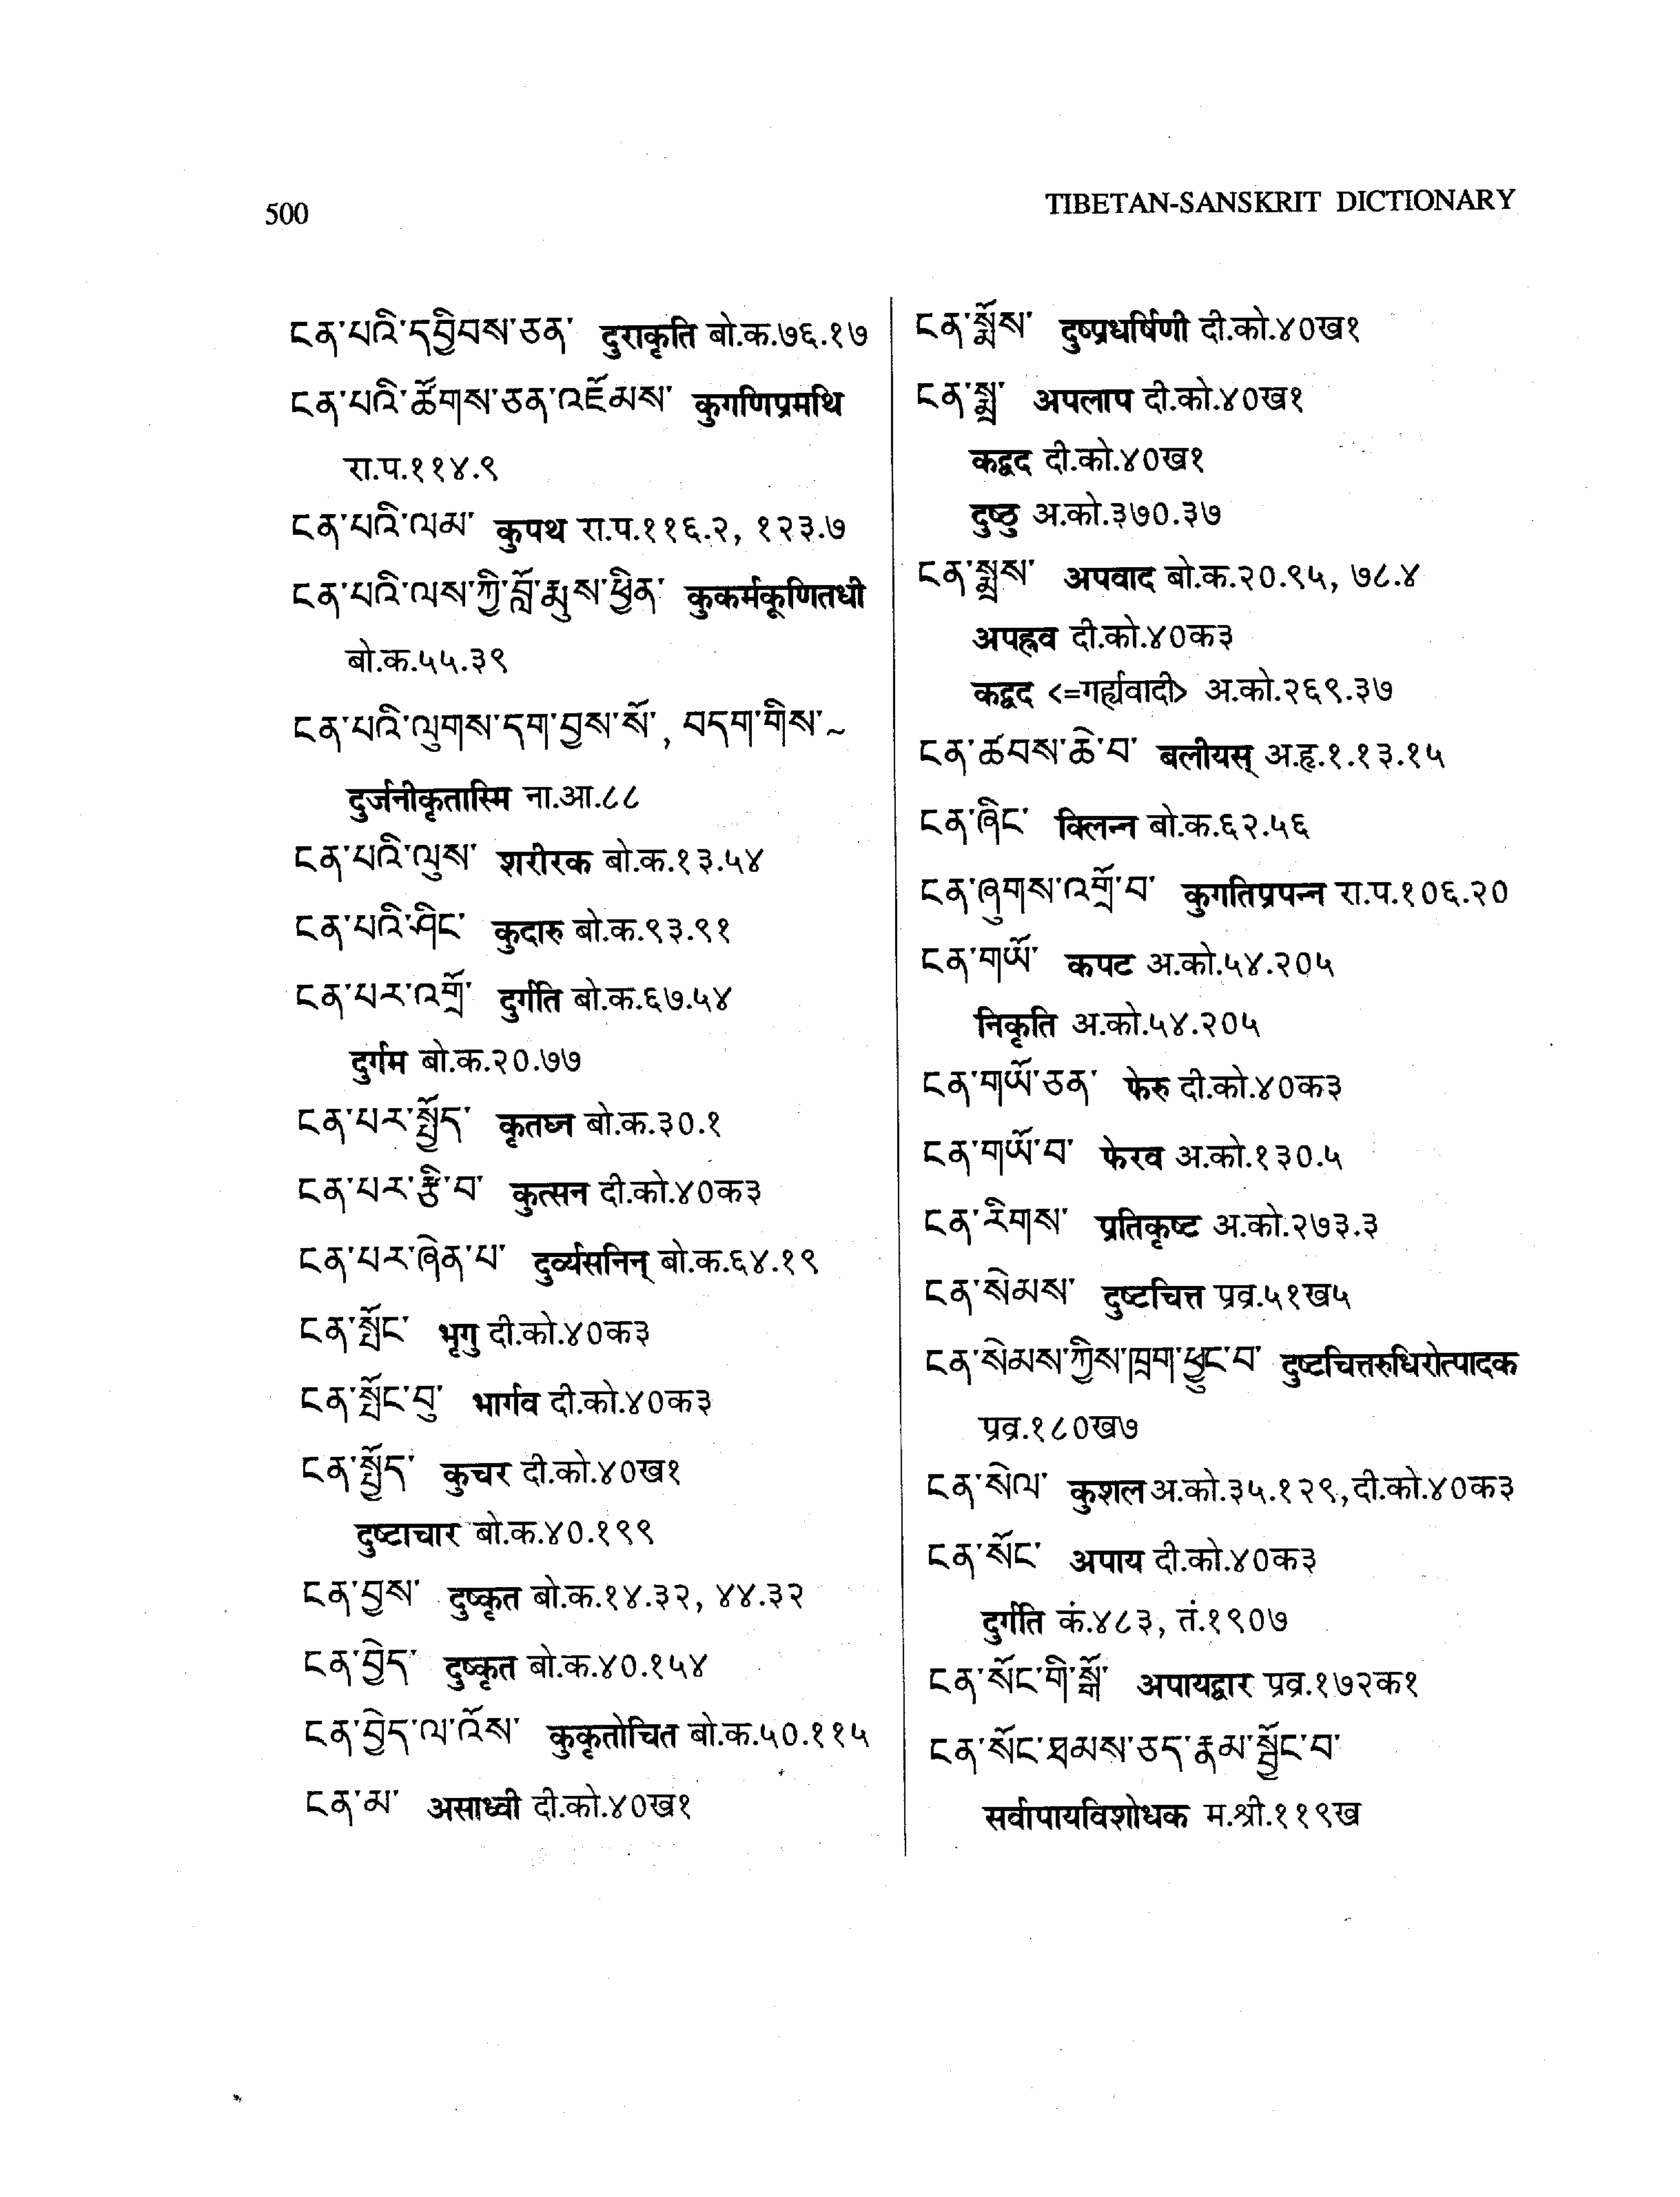 500
TIBETAN-SANSKRIT DICTIONARY
ངན་པའི་དབྱིབས་ཅན་ दुराकृति बो.क.७६.१७
ངན་པའི་ཚོགས་ཅན་འཇོམས་ कुगणिप्रमथि
रा.प.११४.९
ངན་པའི་ལམ་ कुपथ रा.प.११६.२, १२३.७
ངན་པའི་ལས་ཀྱི་བློ་རྨུས་ཕྱིན་ कुकर्मकूणितधी
बो.क.५५.३९
ངན་པའི་ལུགས་དག་བྱས་སོ་, བདག་གིས་~
दुर्जनीकृतास्मि ना.आ.८८
ངན་པའི་ལུས་ शरीरक बो.क.१३.५४
ངན་པའི་ཤིང་ कुदारु बो.क.९३.९१
ངན་པར་འགྲོ་ दुर्गति बो.क.६७.५४
दुर्गम बो.क.२०.७७
ངན་པར་སྤྱོད་ कृतघ्न बो.क.३०.१
ངན་པར་རྩི་བ་ कुत्सन दी.को.४०क३
ངན་པར་ཞེན་པ་ दुर्व्यसनिन् बो.क.६४.१९
ངན་སྤོང་ भृगु दी.को.४०क३
ངན་སྤོང་བུ་ भार्गव दी.को.४०क३
ངན་སྤྱོད་ कुचर दी.को.४०ख१
दुष्टाचार बो.क.४०.१९९
ངན་བྱས་ दुष्कृत बो.क.१४.३२, ४४.३२
ངན་བྱེད་ दुष्कृत बो.क.४०.१५४
ངན་བྱེད་ལ་འོས་ कुकृतोचित बो.क.५०.११५
ངན་མ་ असाध्वी दी.को.४०ख१
ངན་སྨོས་ दुष्प्रधर्षिणी दी.को.४०ख१
ངན་སྨྲ་ अपलाप दी.को.४०ख१
कद्वद दी.को.४०ख१
दुष्ठु अ.को.३७०.३७
ངན་སྨྲས་ अपवाद बो.क.२०.९५, ७८.४
अपह्नव दी.को.४०क३
कद्वद <=गर्ह्यवादी> अ.को.२६९.३७
ངན་ཚབས་ཆེ་བ་ बलीयस् अ.हृ.१.१३.१५
ངན་ཞིང་ क्लिन्न बो.क.६२.५६
ངན་ཞུགས་འགྲོ་བ་ कुगतिप्रपन्न रा.प.१०६.२०
ངན་གཡོ་ कपट अ.को.५४.२०५
निकृति अ.को.५४.२०५
ངན་གཡོ་ཅན་ फेरु दी.को.४०क३
ངན་གཡོ་བ་ फेरव अ.को.१३०.५
ངན་རིགས་ प्रतिकृष्ट अ.को.२७३.३
ངན་སེམས་ दुष्टचित्त प्रव्र.५१ख५
ངན་སེམས་ཀྱིས་ཁྲག་ཕྱུང་བ་ दुष्टचित्तरुधिरोत्पादक
प्रव्र.१८०ख७
ངན་སེལ་ कुशल अ.को.३५.१२९,दी.को.४०क३
ངན་སོང་ अपाय दी.को.४०क३
दुर्गति कं.४८३, तं.१९०७
ངན་སོང་གི་སྒོ་ अपायद्वार प्रव्र.१७२क१
ངན་སོང་ཐམས་ཅད་རྣམ་སྦྱོང་བ་
सर्वापायविशोधक म.श्री.११९ख